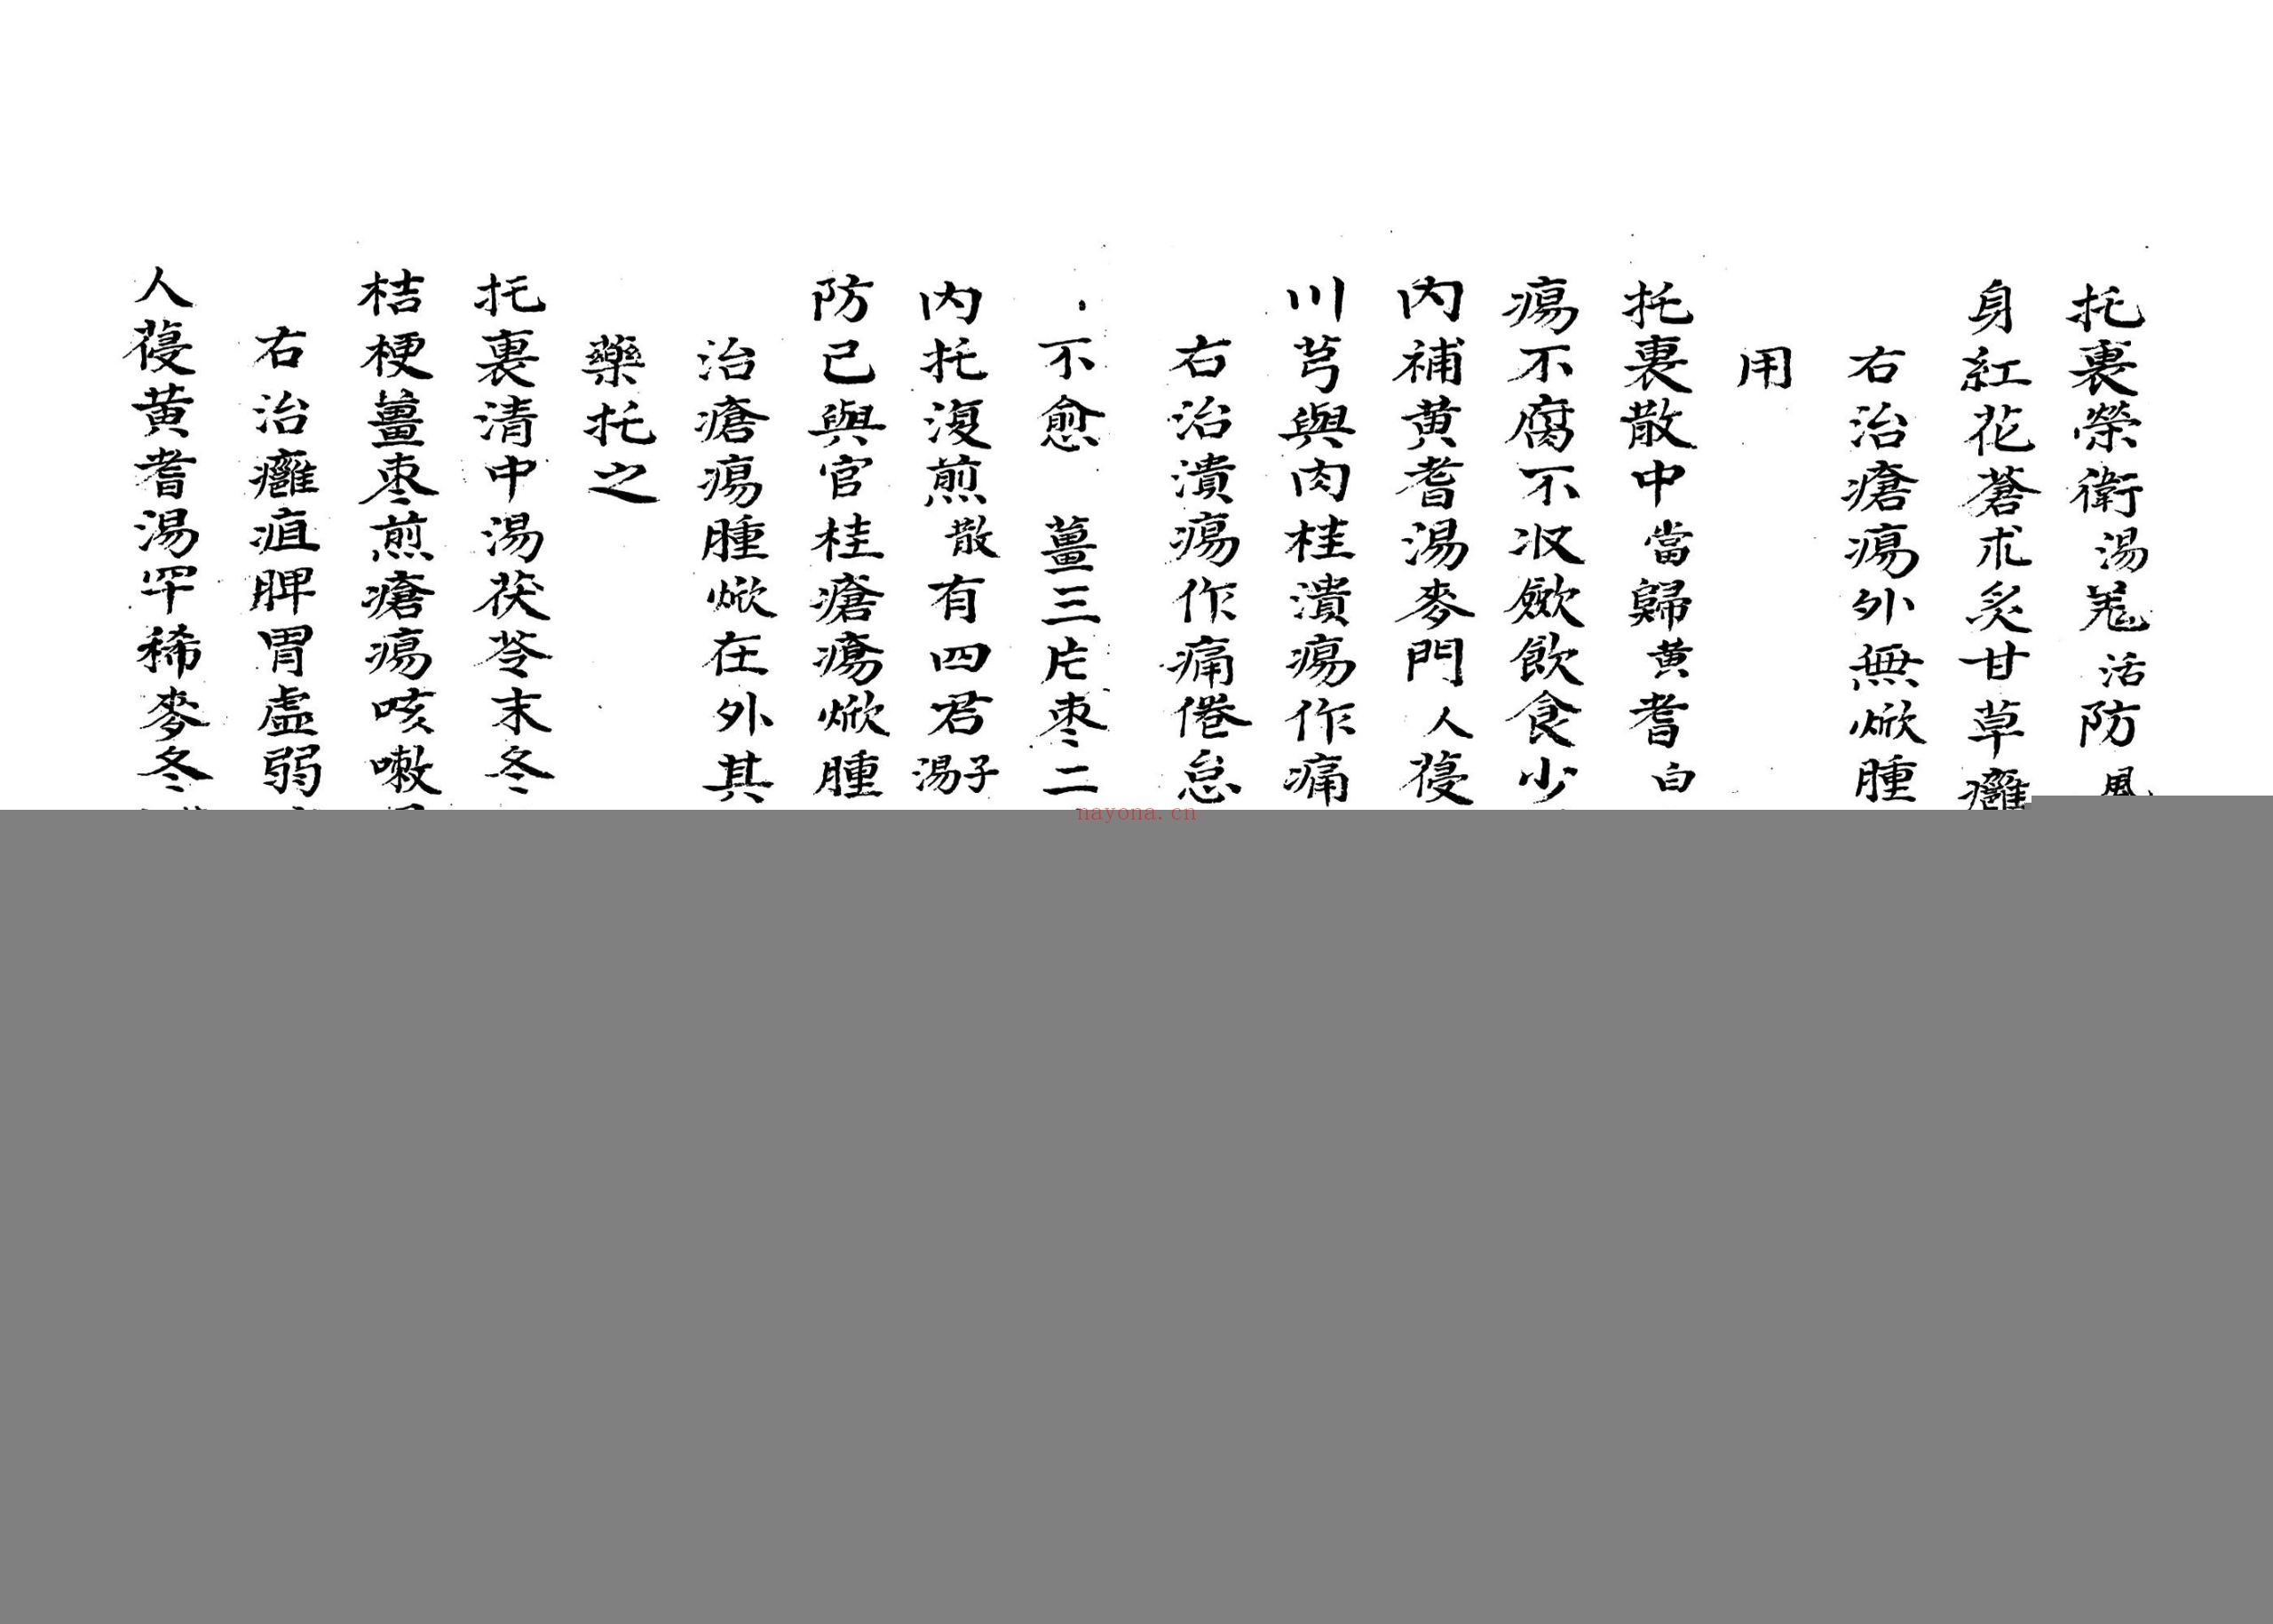 托裏榮衛湯羗活防風
身紅花蒼朮炙甘草癰
右治瘡瘍外無焮腫
用
托裏散中當歸黄耆白
瘍不腐不収歛飲食少
内補黄耆湯麥門人葠
川芎與肉桂潰瘍作痛
右治潰瘍作痛倦怠
不愈 薑三片枣二
内托復煎散有四君子湯
防己與官桂瘡瘍焮腫
治瘡瘍腫焮在外其
藥托之
托裏清中湯茯苓末冬
桔梗薑枣煎瘡瘍咳嗽
右治癰疽脾胃虚弱
人葠黄耆湯罕稀麥冬
nayona.cn